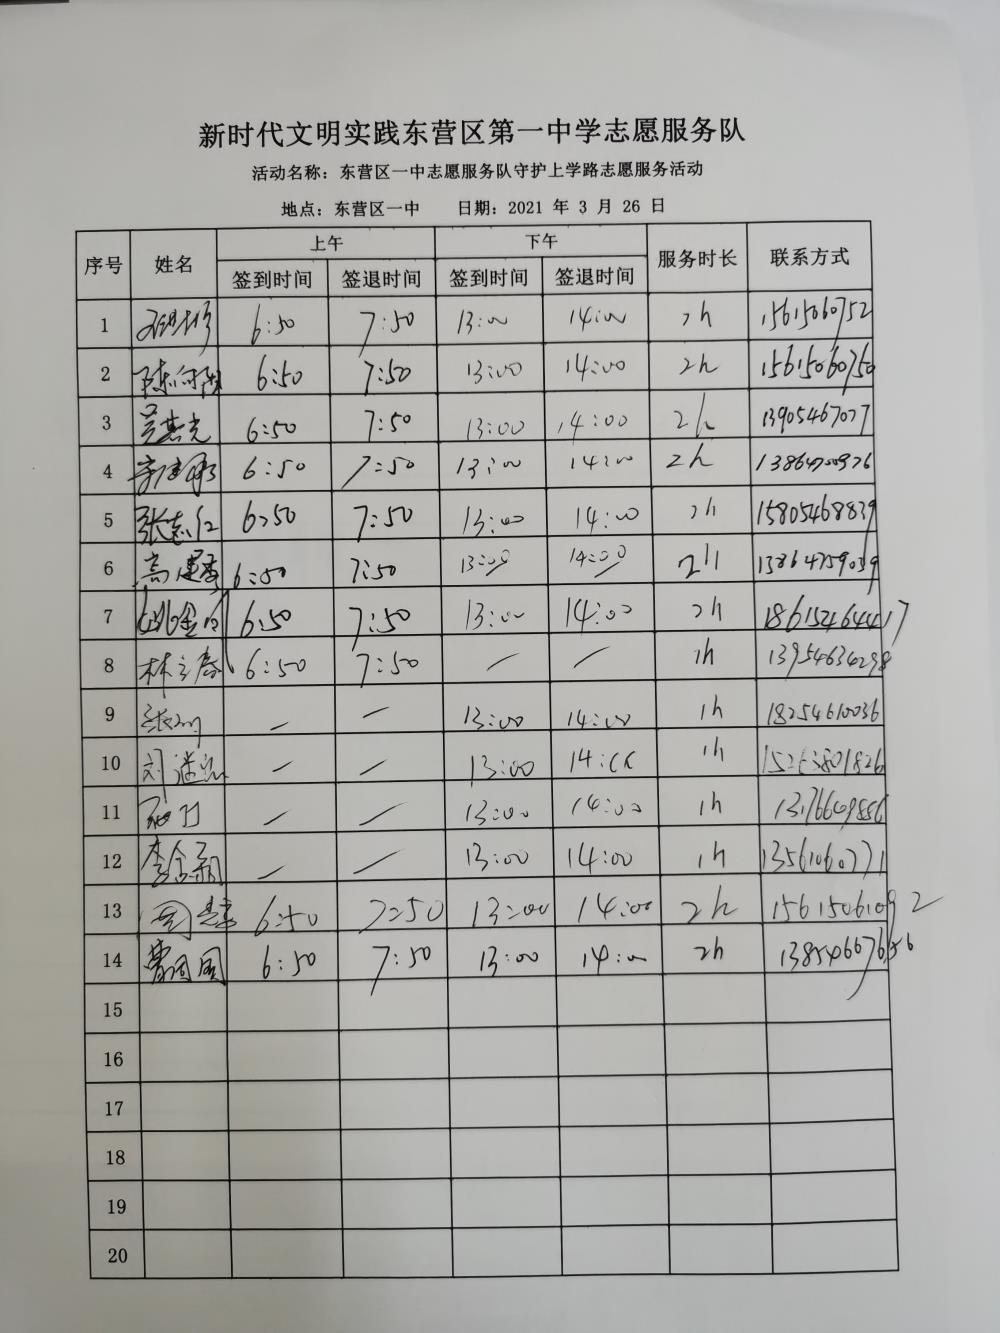 新时代文明实践东营区第一中学志愿服务队
活动名称：东营区一中志愿服务队守护上学路志愿服务活动
地点：东营区一中 日期：2021 年 3 月 26 日
序号 姓名 上午 下午 服务时长 联系方式
签到时间 签退时间 签到时间 签退时间
1 6:50 7:50 13:00 14:00 2h 15615060752
2 陈向阳 6:50 7:50 13:00 14:00 2h 15615060750
3 6:50 7:50 13:00 14:00 2h 13905467077
4 6:50 7:50 13:00 14:00 2h 13864700976
5 张志仁 6:50 7:50 13:00 14:00 2h 15805468839
6 6:50 7:50 13:00 14:00 2h 13864759039
7 6:50 7:50 13:00 14:00 2h 18615246447
8 林立春 6:50 7:50 / / 1h 13954634298
9 — — 13:00 14:00 1h 18254610036
10 — — 13:00 14:00 1h 15263801826
11 — — 13:00 14:00 1h 13176649886
12 — — 13:00 14:00 1h 13561060771
13 6:50 7:50 13:00 14:00 2h 15615061092
14 6:50 7:50 13:00 14:00 2h 13854667656
15
16
17
18
19
20